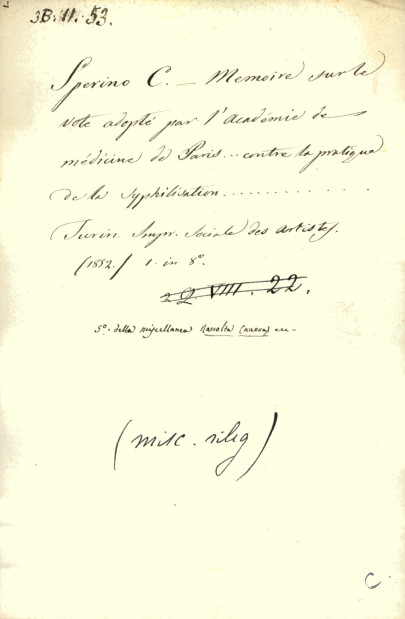 3B. 11. 53.
Sperino C. — Memoire sur le
vote adopté par l'Académie de
médicine de Paris... contre la pratique
de la syphilisation..............
Turin. Impr. Sociale des Artistes.
(1852.) 1. in 8º.
2 Q VIII. 22.
5º. della miscellanea Raccolta
(misc. rileg)
C